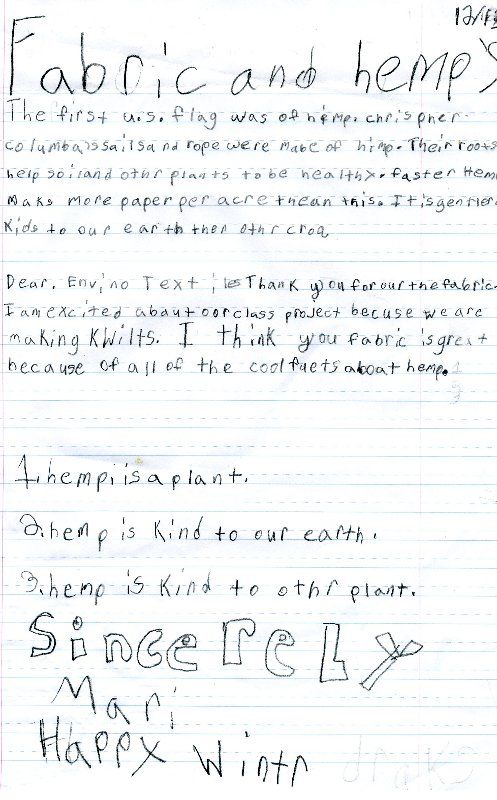 12/13
Fabric and hemp
The first u.s. flag was of hemp. chrispher
columbassailsand rope were made of himp. Their roots
help soil and othr plants to be healthy. faster Hem
Maks More paper per acre thean this. It is gentler
Kids to our earth then othr crog
Dear, Envino Text iles Thank you for our the fabric.
I am excited abaut oor class project becuse we are
making KWilts. I think you fabric is great
because of all of the cool faets aboat hemp.
1. hemp, is a plant.
2. hemp is Kind to our earth.
3. hemp is Kind to othr plant.
Sincerely
Mari
Happy Wintr